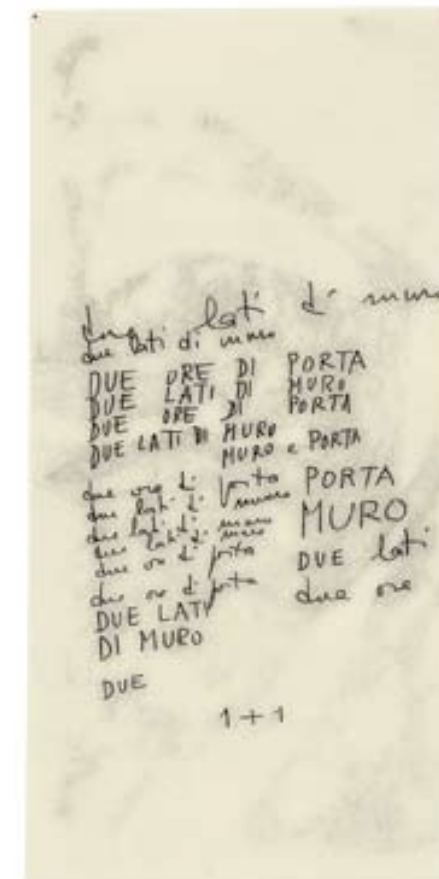 due lati di muro
due lati di muro
DUE ORE DI PORTA
DUE LATI DI MURO
DUE ORE DI PORTA
DUE LATI DI MURO
MURO e PORTA
due ore di porta PORTA
due lati di muro
due lati di muro MURO
due lati di muro
due ore di porta DUE lati
due ore di porta due ore
DUE LATI
DI MURO
DUE
1+1